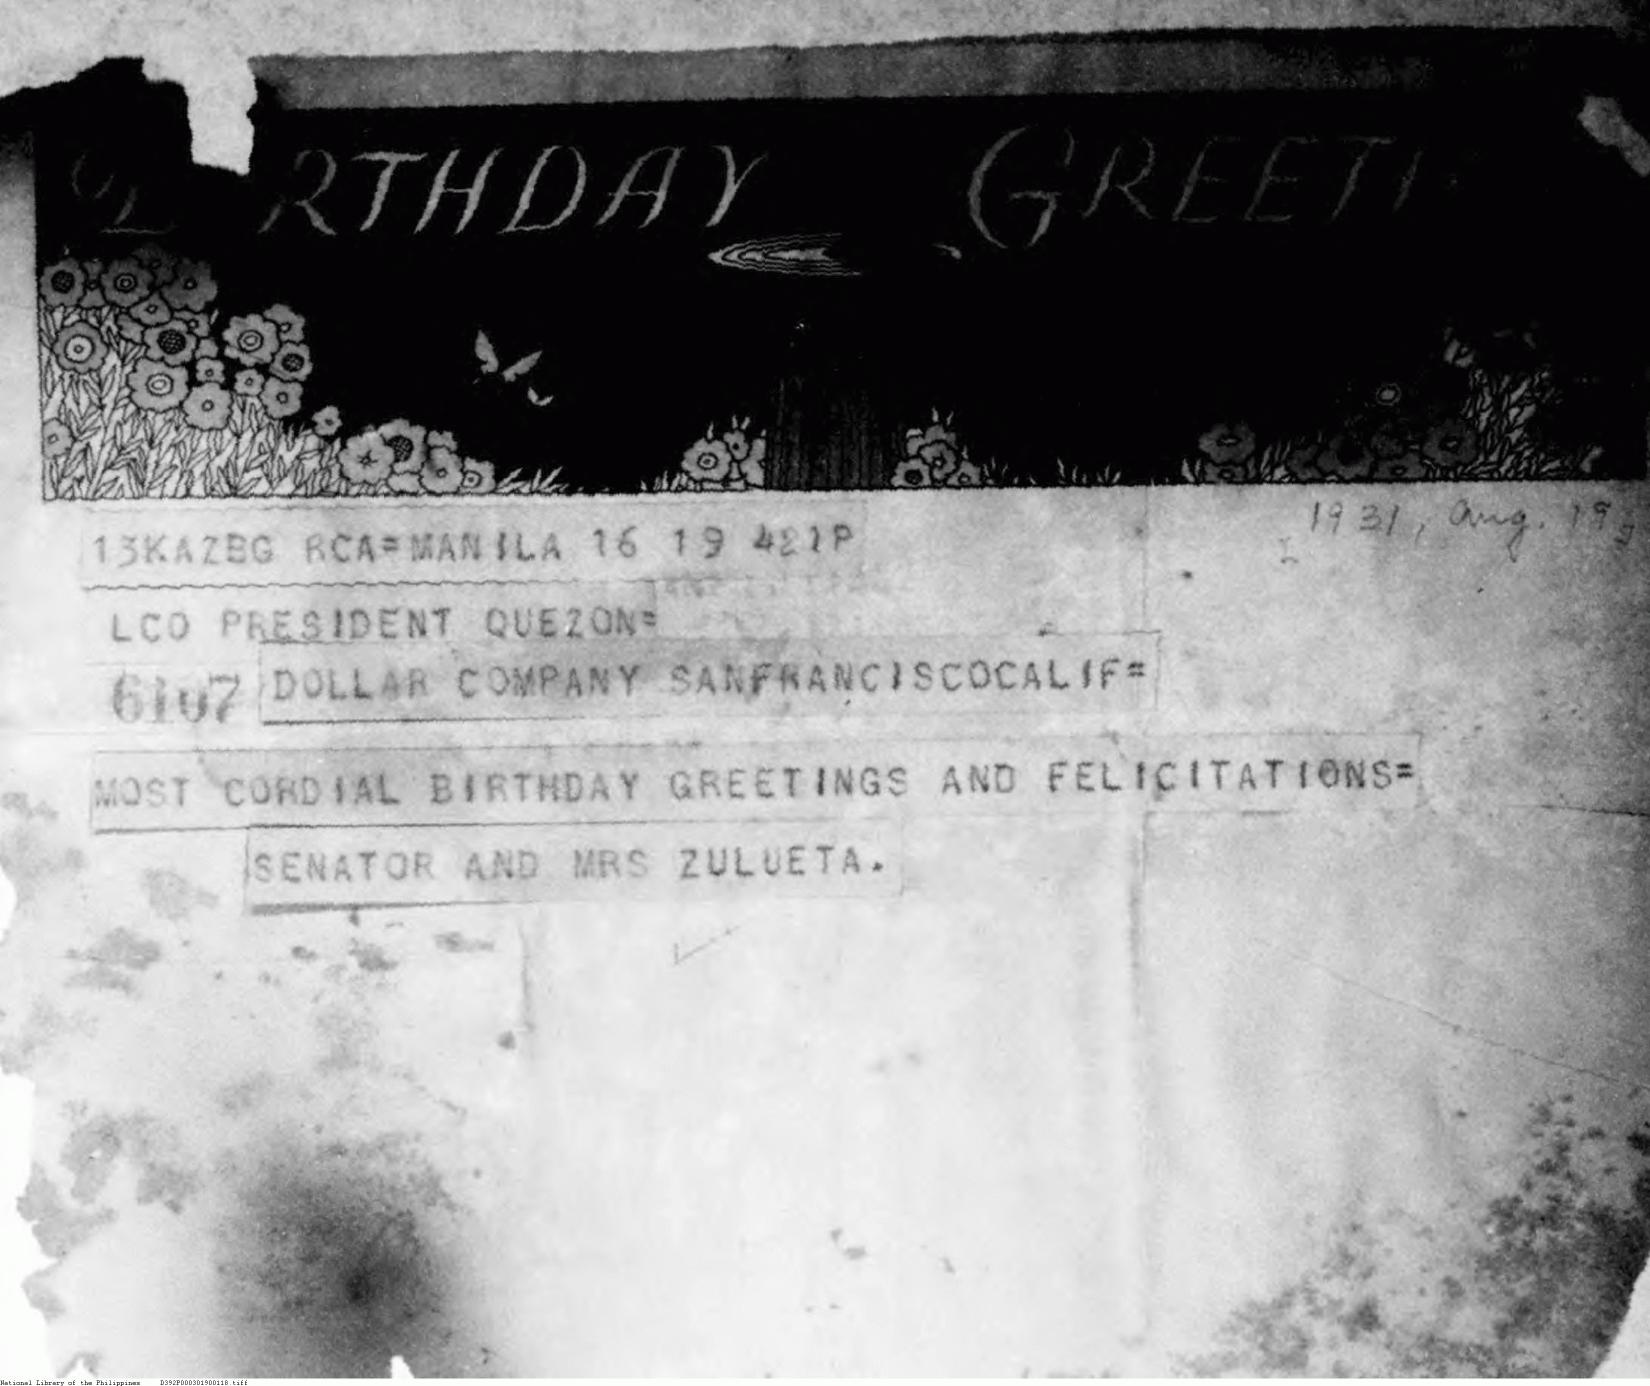 BIRTHDAY GREETI
1931, Aug. 19
13KAZBG RCA=MANILA 16 19 421P
LCO PRESIDENT QUEZON=
6107 DOLLAR COMPANY SANFRANCISCOCALIF=
MOST CORDIAL BIRTHDAY GREETINGS AND FELICITATIONS=
SENATOR AND MRS ZULUETA.
National Library of the Philippines D392P000301900118.tiff